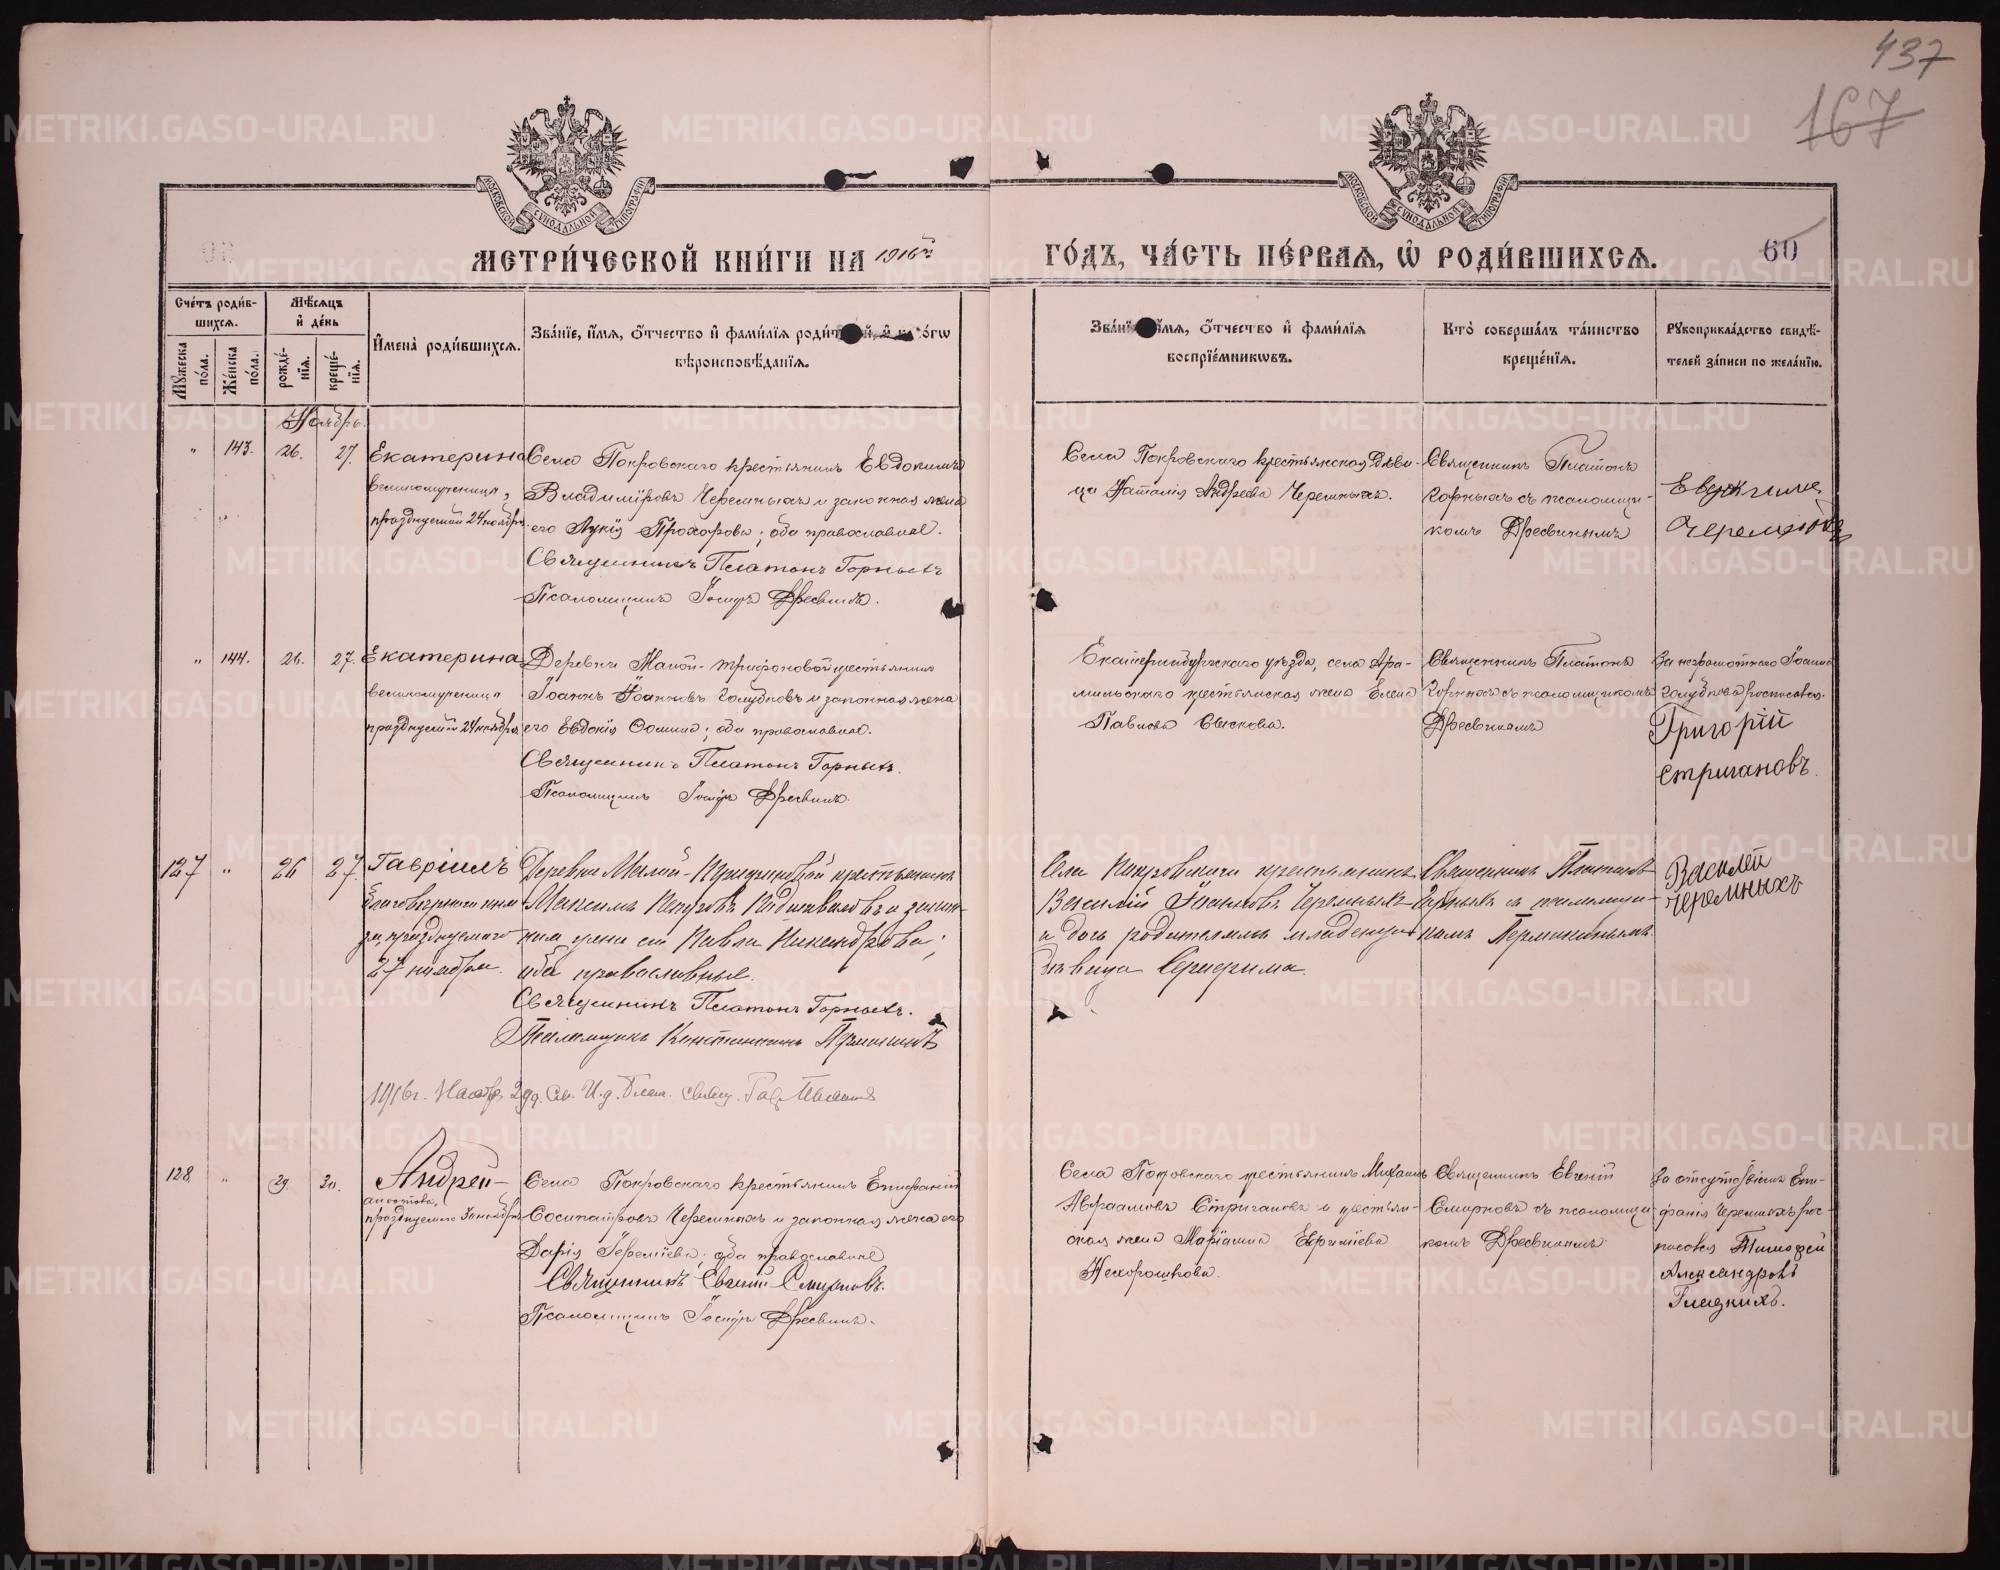 437
167
МОСКОВСКОЙ СѴНОДАЛЬНОЙ ТИПОГРАФІИ
МОСКОВСКОЙ СѴНОДАЛЬНОЙ ТИПОГРАФІИ
МЕТРИ́ЧЕСКОЙ КНИ́ГИ НА 1916й
ГО́ДЪ, ЧА́СТЬ ПЕ́РВАѦ, Ѡ҆ РОДИ́ВШИХСѦ.
60
Сче́тъ роди́в-
шихсѧ.
Мꙋ́жеска по́ла.
Же́нска по́ла.
Мѣ́сѧцъ и҆ де́нь
рожде́-нїѧ.
креще́-нїѧ.
И҆мена̀ роди́вшихсѧ.
Зва́нїе, и҆́мѧ, ѻ҆́тчество и҆ фами́лїѧ роди́
вѣроисповѣ́данїѧ.
и҆́мѧ, ѻ҆́тчество и҆ фами́лїѧ
воспрїе́мникѡвъ.
Кто̀ соверша́лъ та́инство
креще́нїѧ.
Рꙋкоприкла́дство свидѣ́-
телей за́писи по жела́нїю.
Ноябрь.
" 143. 26. 27.
Екатерина
великомученица,
празднуемой 24 ноября
Села Покровскаго крестьянинъ Евдокимъ
Владиміровъ Черемныхъ и законная жена
его Лукія Прохорова; оба православные.
Священникъ Платонъ Горныхъ
Псаломщикъ Іосифъ Дресвинъ.
Села Покровскаго крестьянская дѣви-
ца Наталія Андреева Черемныхъ.
Священникъ Платонъ
Горныхъ съ псаломщи-
комъ Дресвинымъ
Евдокимъ
Черемныхъ
" 144. 26. 27.
Екатерина
великомученица
празднуемой 24 ноября
Деревни Малой-Трифоновой крестьянинъ
Іоаннъ Іоанновъ Голубковъ и законная жена
его Евдокія Ѳомина; оба православные.
Священникъ Платонъ Горныхъ.
Псаломщикъ Іосифъ Дресвинъ.
Екатеринбургскаго уѣзда, села Ара-
мильскаго крестьянская жена Елена
Павлова Сыскова.
Священникъ Платонъ
Горныхъ съ псаломщикомъ
Дресвинымъ
За неграмотнаго Іоанна
Голубкова росписался
Григорій
Стригановъ.
127 " 26 27.
Гавріилъ
благовѣрнаго кня
зя, празднуемаго
27 ноября.
Деревни Малой-Трифоновой крестьянинъ
Максимъ Петровъ и закон-
ная жена его Павла Никандрова;
оба православные.
Священникъ Платонъ Горныхъ.
Псаломщикъ Константинъ Пермикинъ
Села Покровскаго крестьянинъ
Василій Іоанновъ Черемныхъ
и дочь родителямъ младенца
дѣвица Серафима.
Священникъ Платонъ
Горныхъ съ псаломщи-
комъ Пермикинымъ.
Василей
Черемныхъ
1916г. Ноября 29 д. И. д. Благ. свящ.
128 " 29. 30.
Андрей-
апостола,
празднуемаго 30 ноября
Села Покровскаго крестьянинъ Епифаній
Сосипатровъ Черемныхъ и законная жена его
Дарія Іереміева; оба православные
Священникъ Евгеній Смирновъ.
Псаломщикъ Іосифъ Дресвинъ.
Села Покровскаго крестьянинъ Михаилъ
Авраамовъ Стригановъ и крестьян-
ская жена Маріамна Евфиміева
Нехорошкова.
Священникъ Евгеній
Смирновъ съ псаломщи-
комъ Дресвинымъ
За отсутствіемъ Епи-
фанія Черемныхъ рос-
писался Тимофей
Александровъ
Гладкихъ.